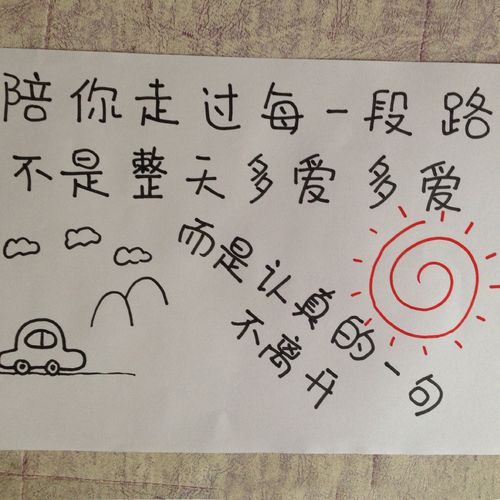 陪你走过每一段路
不是整天多爱多爱
而是认真的一句
不离开